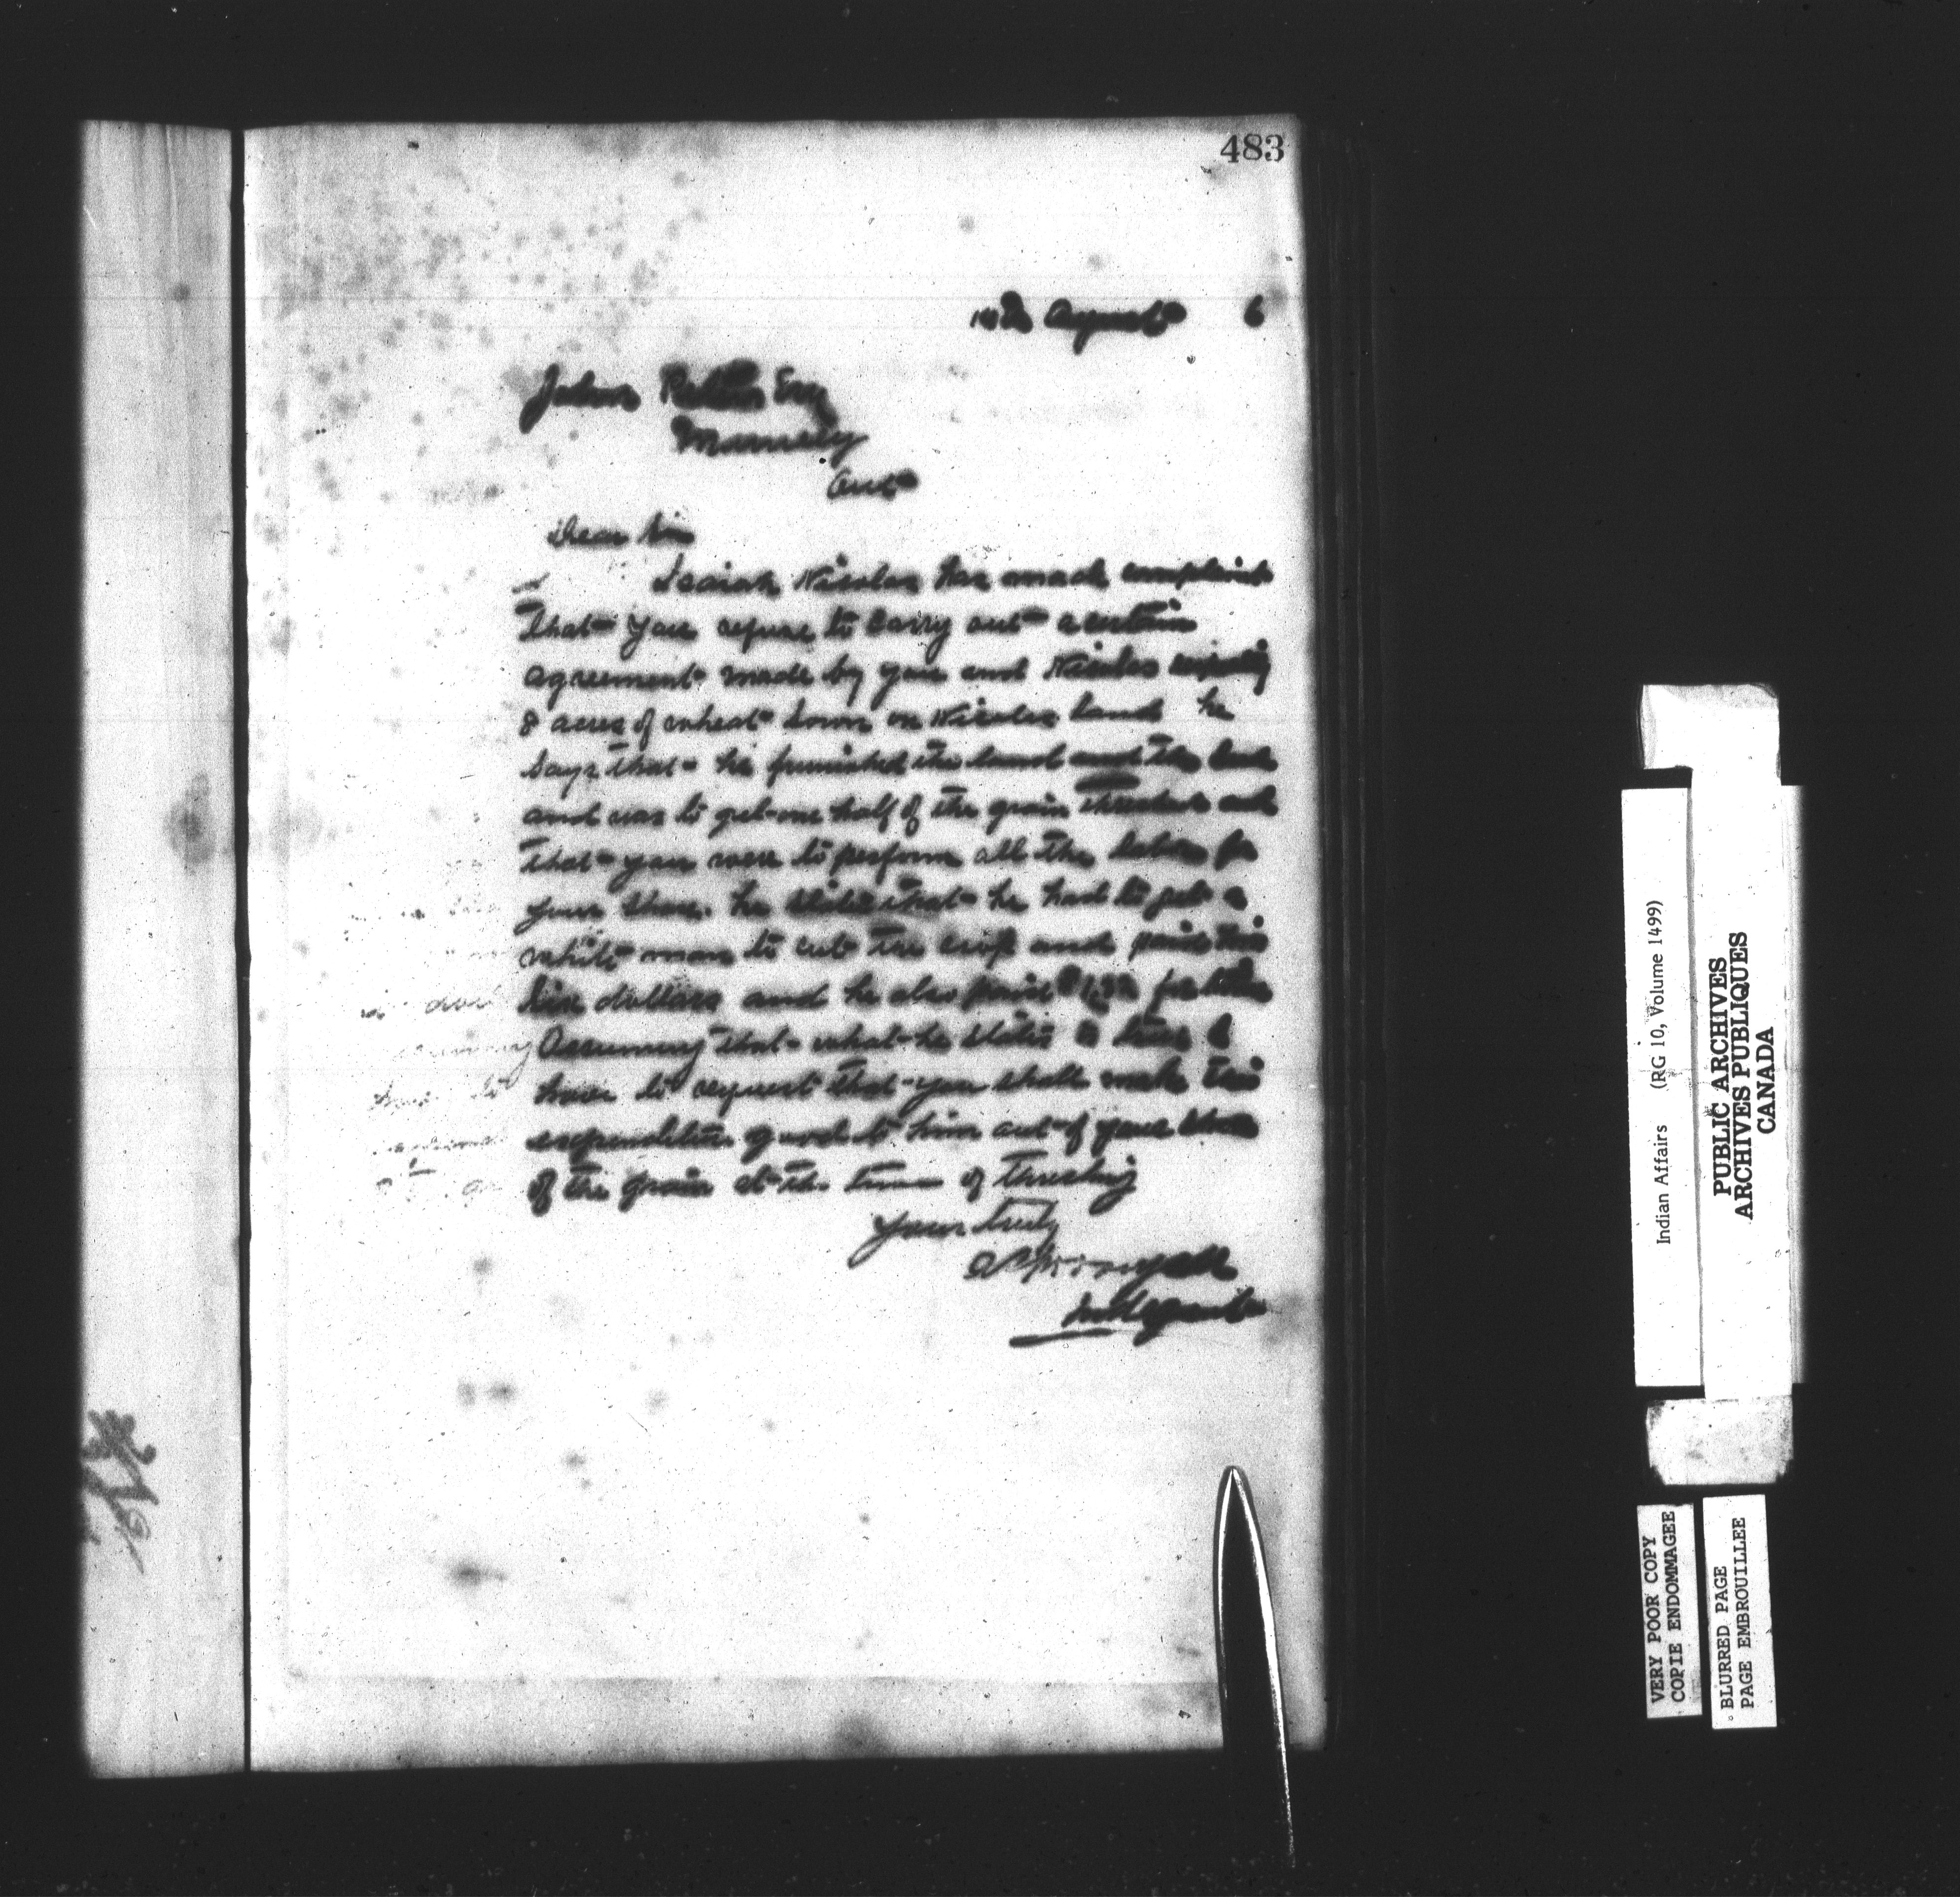 483
14th August 6
John Esq
Muncey
Ont
Dear Sir
Isaiah Nicolas has made complaint
that you refuse to carry out a certain
agreement made by you and Nicolas
8 acres of wheat sown on Nicolas land he
says that he furnished the land and the
and was to get one half of the grain and
that you were to perform all the labor for
your share. he states that he had to get a
white man to cut the crop and paid him
Six dollars and he also paid for
Assuming that what he states is true I
have to request that you shall make this
expenditure good to him out of your share
of the grain at the time of threshing
Yours truly
Ind Agent
Indian Affairs (RG 10, Volume 1499)
PUBLIC ARCHIVES
ARCHIVES PUBLIQUES
CANADA
VERY POOR COPY
COPIE ENDOMMAGEE
BLURRED PAGE
PAGE EMBROUILLEE